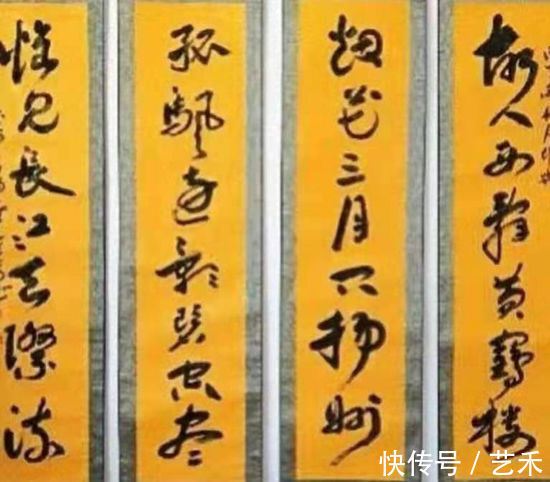 故人西辞黄鹤楼
烟花三月下扬州
孤帆远影碧空尽
惟见長江天際流
快传号 / 艺禾